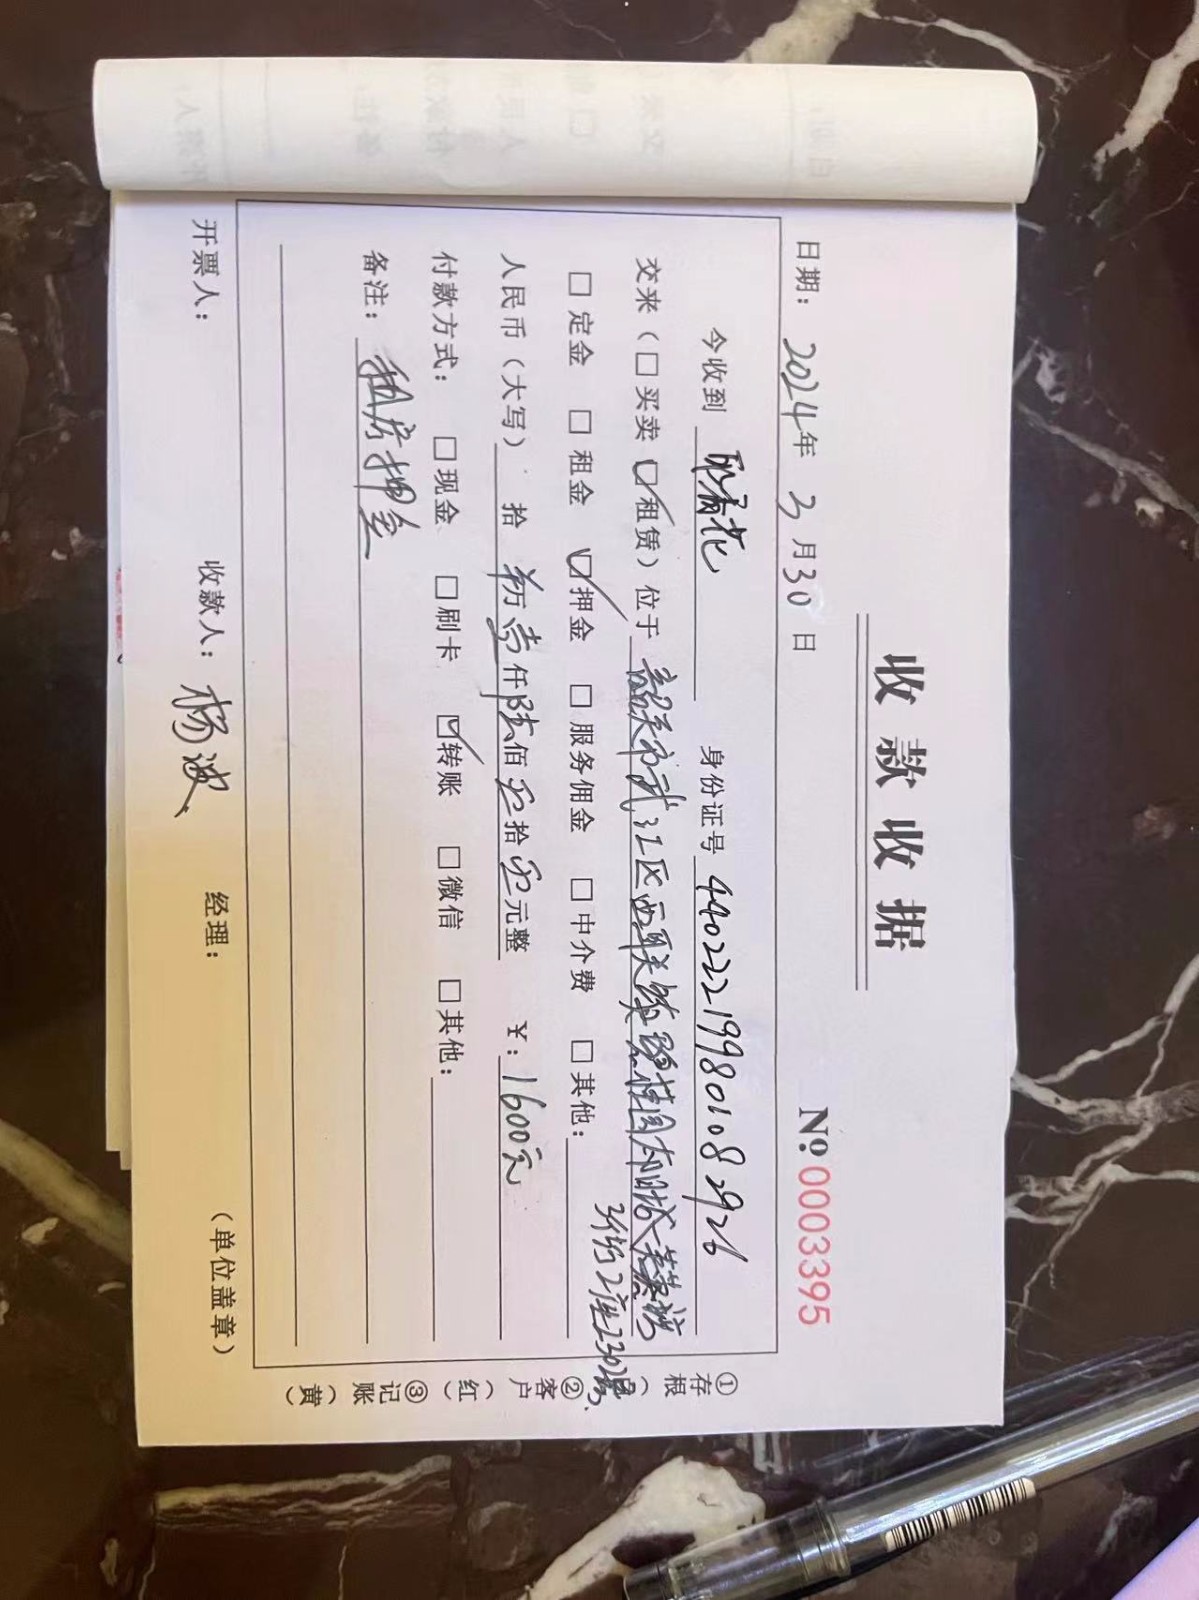 收款收据
日期：2024年3月30日 № 0003395
今收到 身份证号 440222199801082926
交来（□买卖 ☑租赁）位于 韶关市武江区西联镇碧桂园太阳城
3街2座2302号
□定金 □租金 ☑押金 □服务佣金 □中介费 □其他：
人民币（大写） 拾 万 壹仟陆佰 拾 元整 ¥：1600元
付款方式：□现金 □刷卡 ☑转账 □微信 □其他：
备注：租房押金
开票人： 收款人：杨波 经理： （单位盖章）
①存根（ ②客户（红） ③记账（黄）